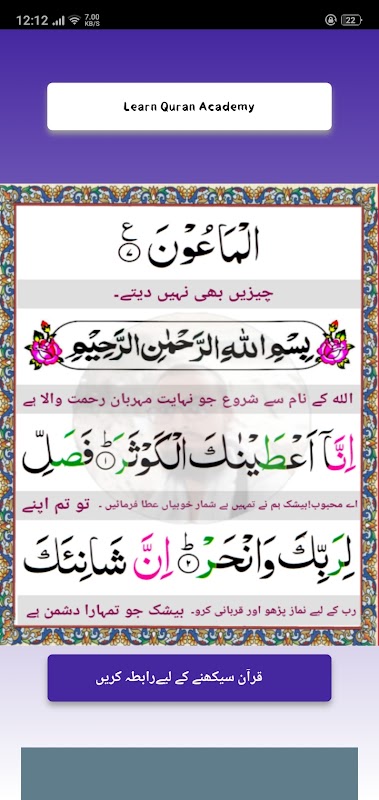 12:12 7.00 KB/S 22
Learn Quran Academy
الْمَاعُوْنَ ﴿۷﴾ ع
چیزیں بھی نہیں دیتے۔
بِسْمِ اللهِ الرَّحْمٰنِ الرَّحِيْمِ
اللہ کے نام سے شروع جو نہایت مہربان رحمت والا ہے
اِنَّاۤ اَعْطَيْنٰكَ الْكَوْثَرَ ﴿۱﴾ؕ فَصَلِّ
اے محبوب!بیشک ہم نے تمہیں بے شمار خوبیاں عطا فرمائیں ۔ تو تم اپنے
لِرَبِّكَ وَانْحَرْ ﴿۲﴾ؕ اِنَّ شَانِئَكَ
رب کے لیے نماز پڑھو اور قربانی کرو۔ بیشک جو تمہارا دشمن ہے
قرآن سیکھنے کے لیےرابطہ کریں